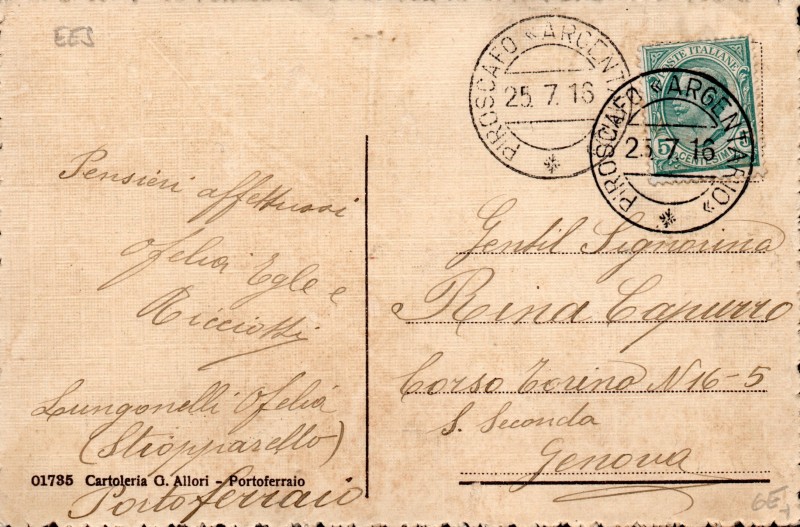 EES
Pensieri affettuosi
Ofelia Egle e
Ricciotti
Lungonelli Ofelia
(Stropparello)
01735 Cartoleria G. Allori - Portoferraio
Portoferraio
PIROSCAFO «ARGENT
25. 7. 16
POSTE ITALIANE
5 CENTESIMI 5
PIROSCAFO «ARGENTARIO»
25. 7. 16
Gentil Signorina
Rina Capurro
Corso Torino N 16-5
S. Seconda
Genova